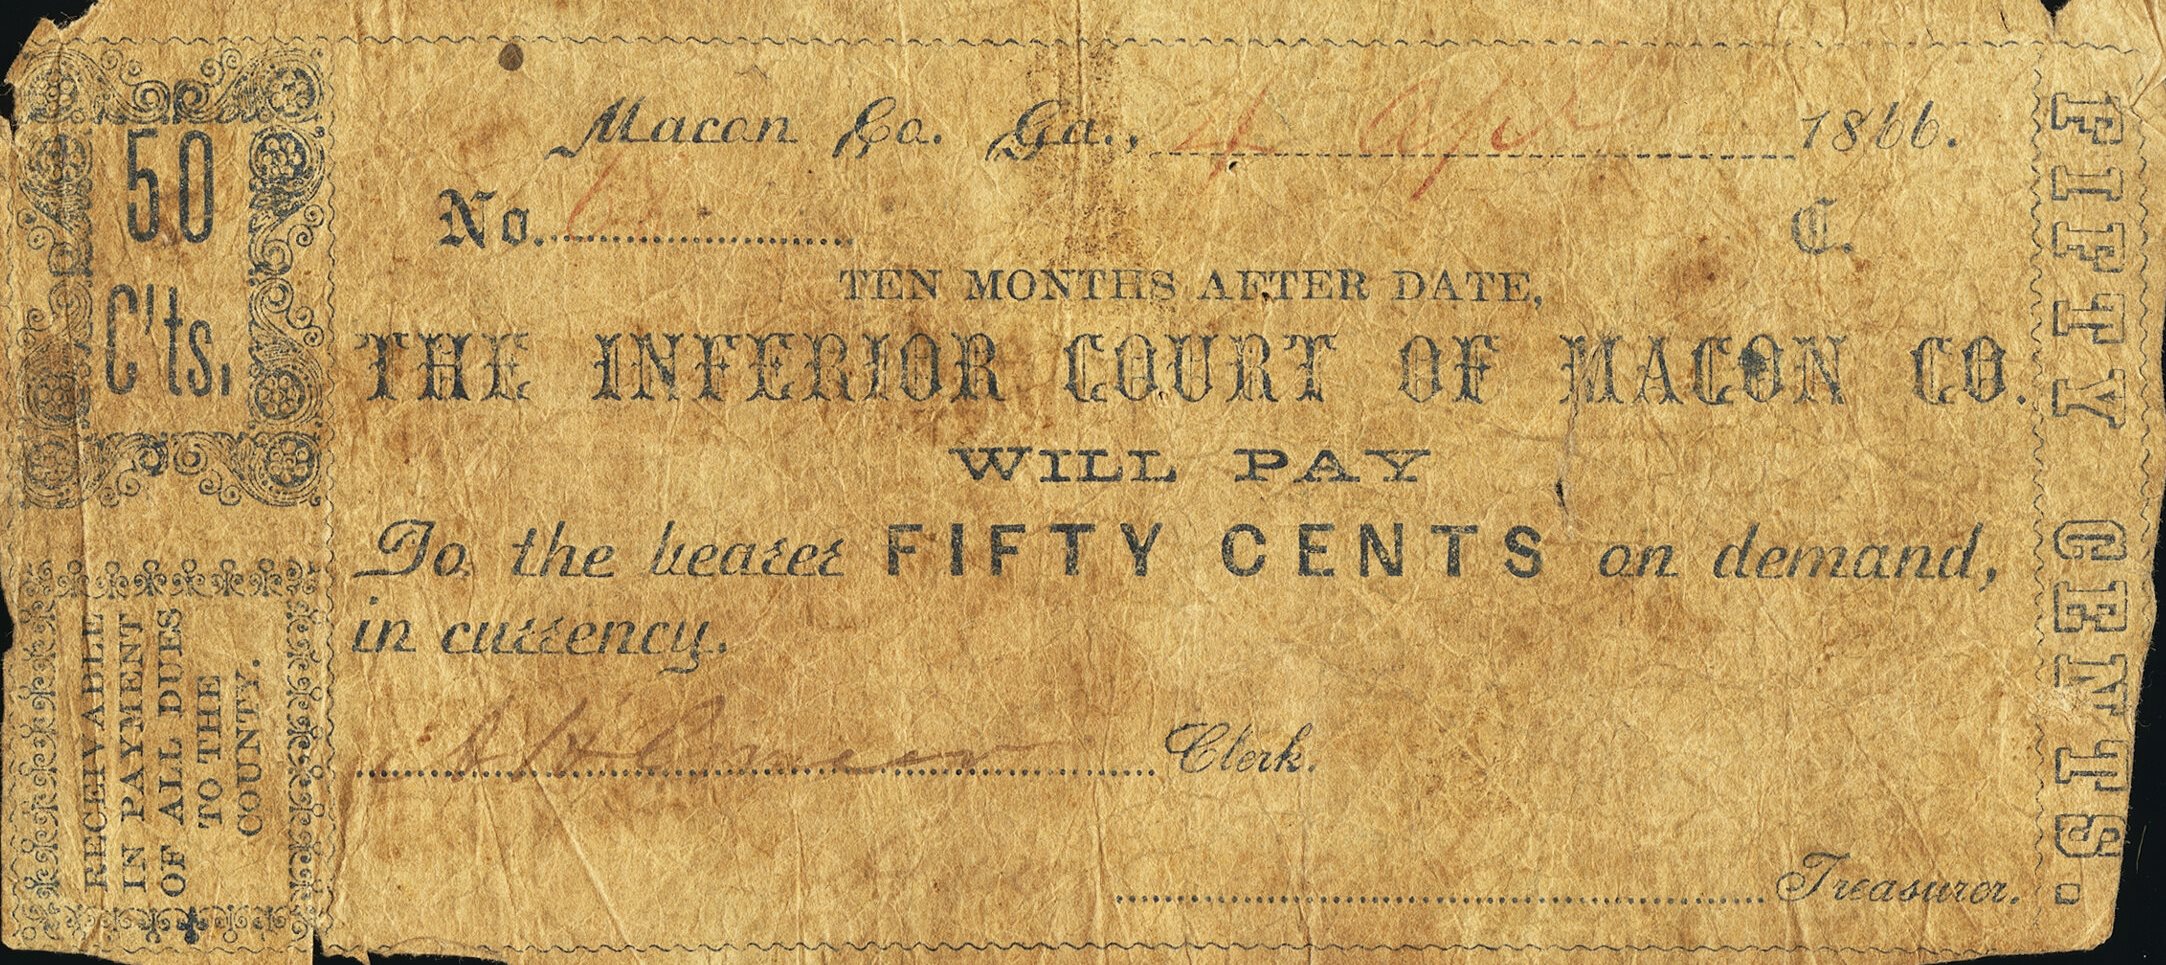 50
C'ts,
RECEIVABLE
IN PAYMENT
OF ALL DUES
TO THE
COUNTY.
Macon Co. Ga., 4 Apl 1866.
No. C.
TEN MONTHS AFTER DATE,
THE INFERIOR COURT OF MACON CO.
WILL PAY
To the bearer FIFTY CENTS on demand,
in currency.
Clerk.
Treasurer.
FIFTY CENTS.